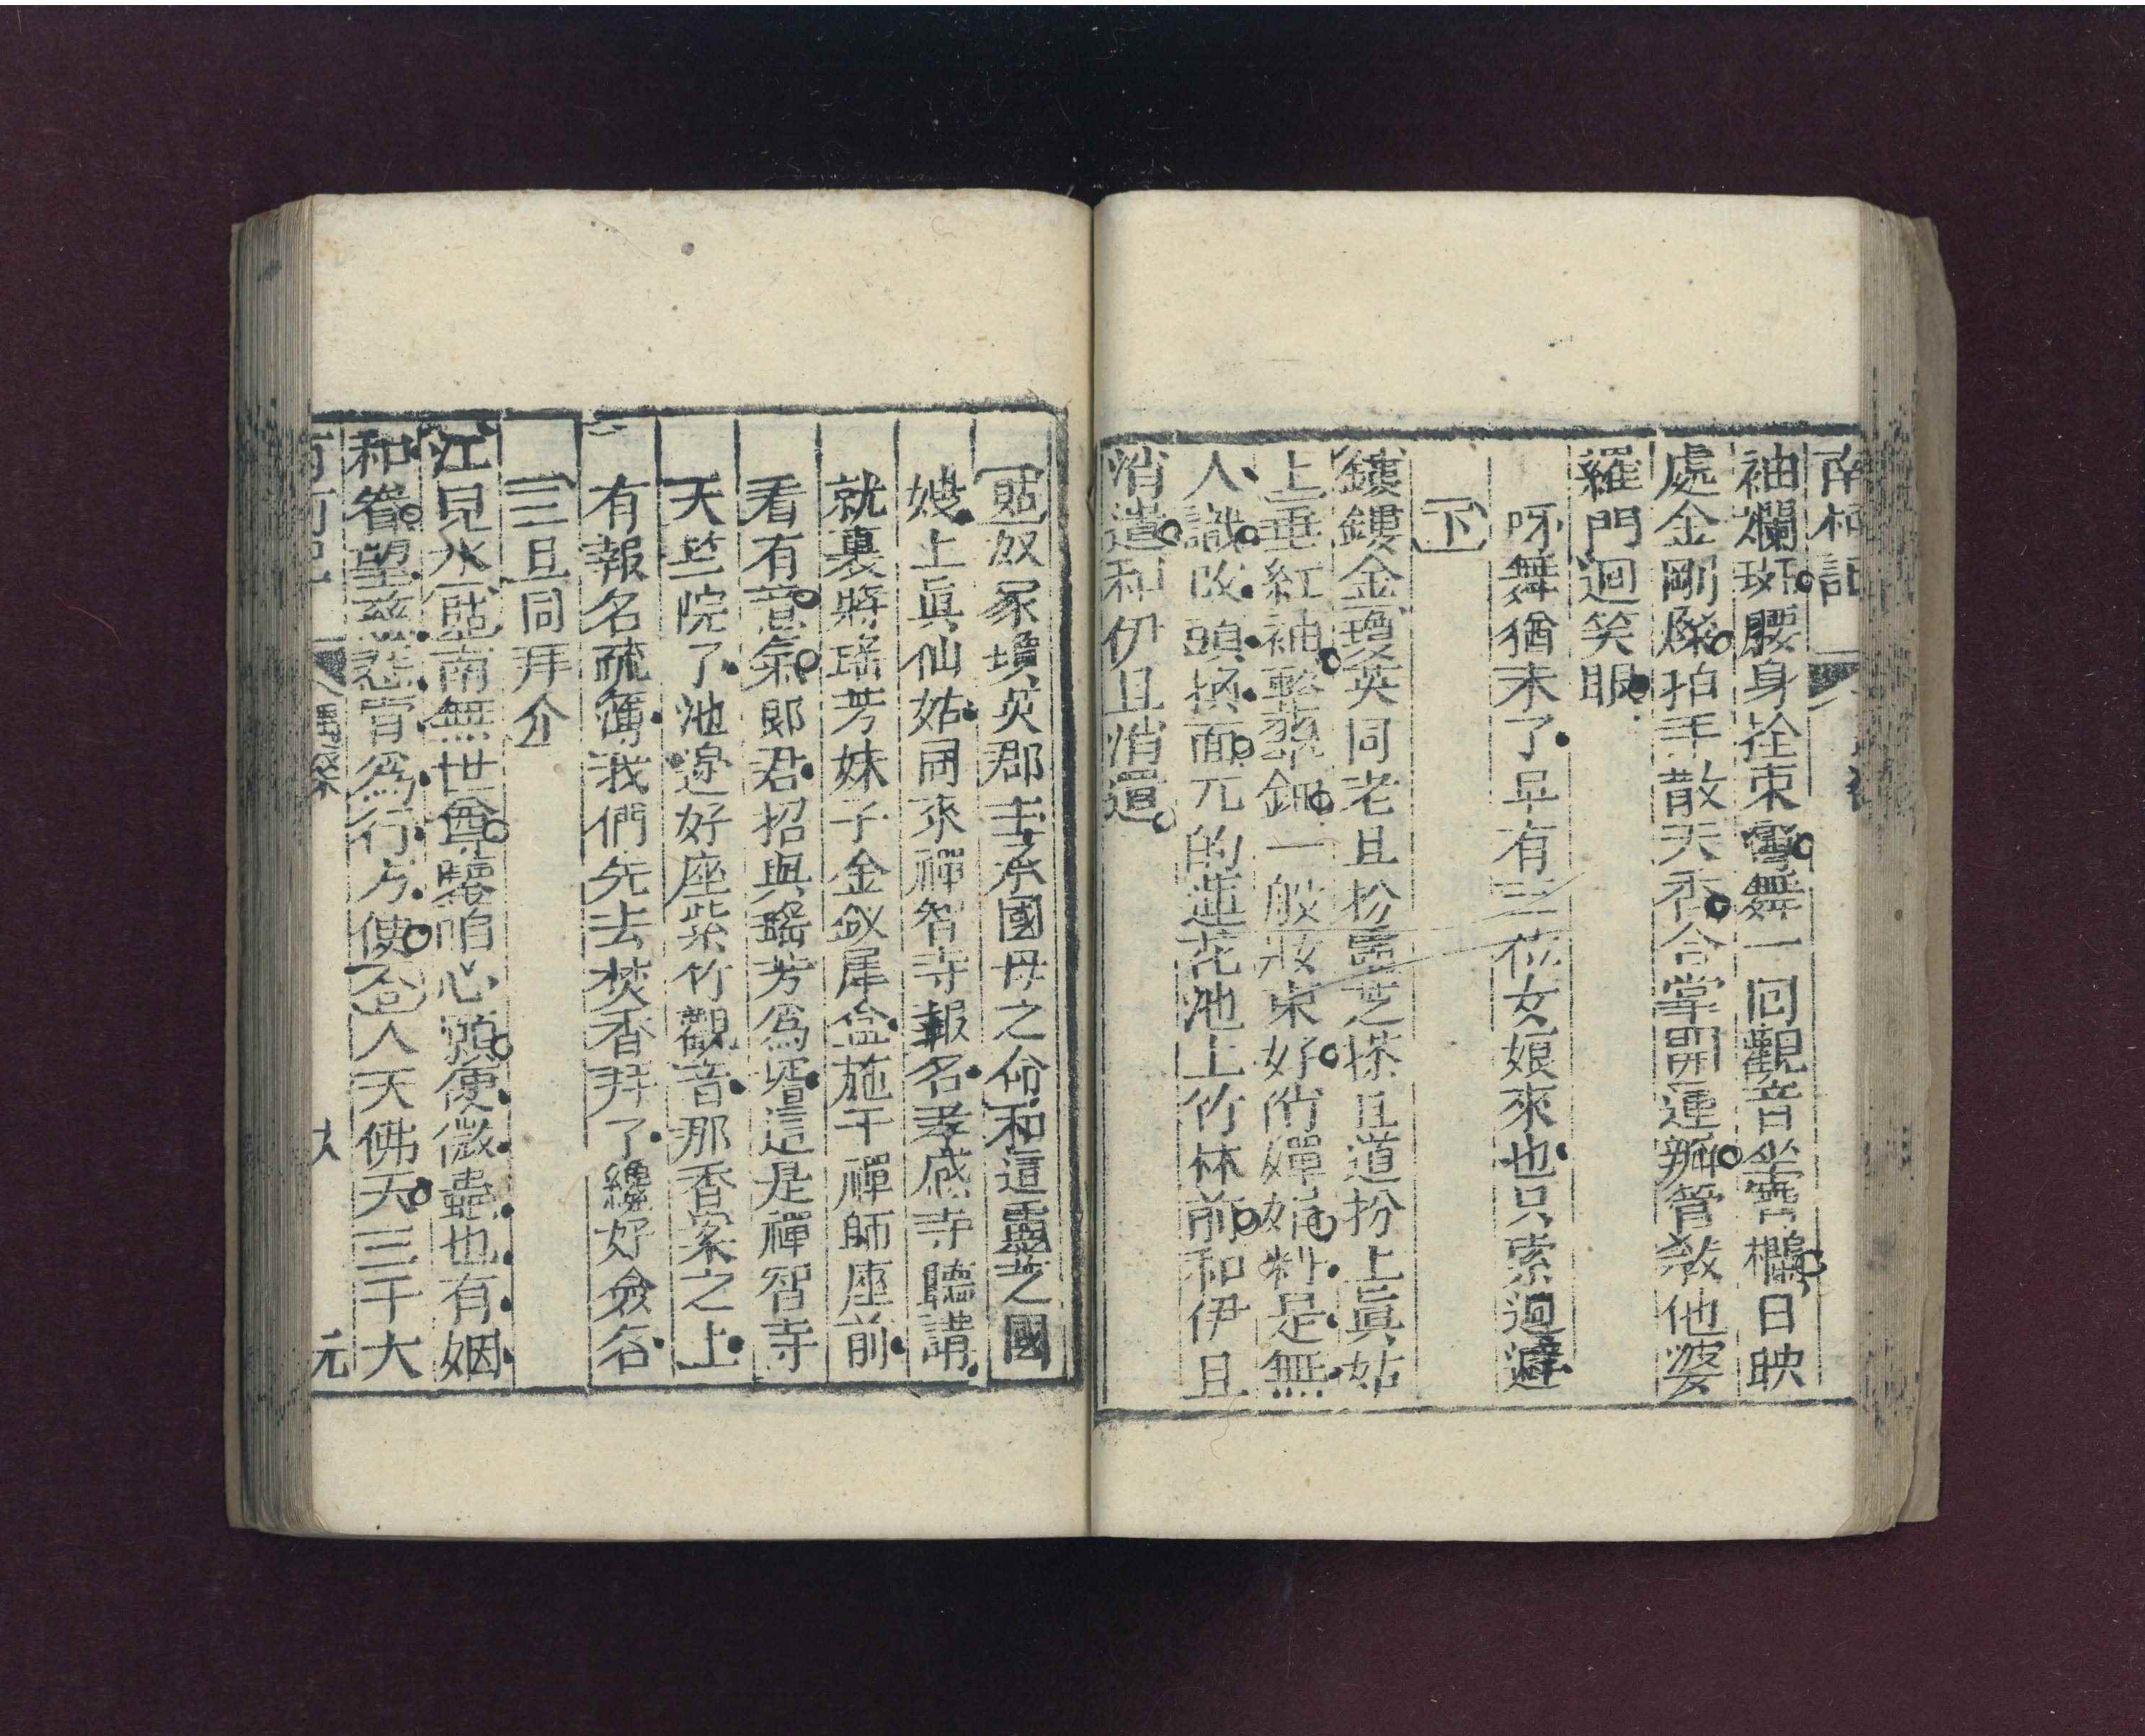 南柯記
袖斕斑腰身拴束雲舞一回觀音坐寳欄日映
處金剛燦拍手散天香合掌開蓮瓣管教他婆
羅門迴笑眼
呀舞猶未了早有三位女娘來也只索迴避
下
鏤鏤金瓊英同老旦扮靈芝搽旦道扮上眞姑
上垂紅袖鬏翠鈿一般妝束好俏嬋娟料是無
人識改頭換面元的蓮花池上竹林前和伊且
消遣和伊且消遣
貼奴家瓊英郡主承國母之命和這靈芝國
嫂上眞仙姑同來禪智寺報名孝感寺聽講
就裏將瑤芳妹子金釵犀盒施于禪師座前
看有意氣郎君招與瑤芳爲壻這是禪智寺
天竺院了池邊好座紫竹觀音那香案之上
有報名疏簿我們先去焚香拜了纔好僉名
三旦同拜介
江見水貼南無世尊鑒咱心願便微蟲也有姻
和眷望慈悲肯爲行方便合人天佛天三千大
南柯記 偶桀 大 元